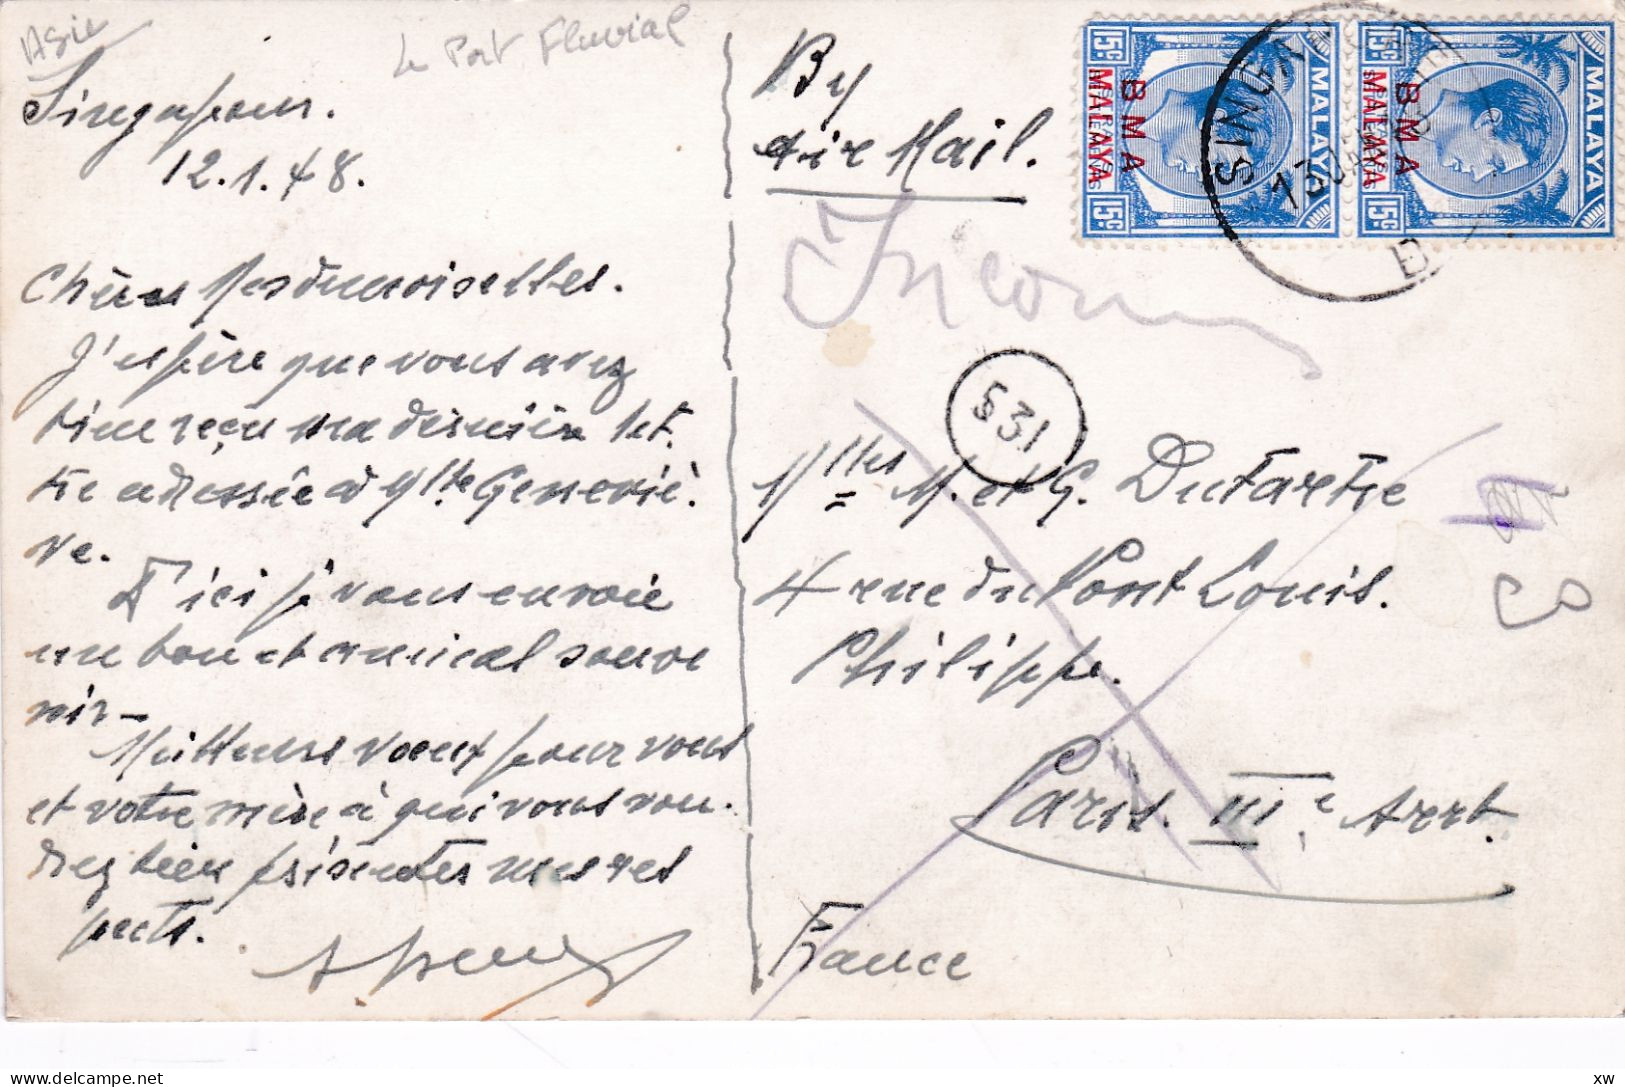 Asie
Le Port Fluvial
Singapour.
12.1.48.
Chères Mesdemoiselles.
J'espère que vous avez
bien reçu ma dernière let.
tre adressée à Mlle Geneviè.
ve.
D'ici je vous envoie
un bon et amical souve
nir-
Meilleurs voeux pour vous
et votre mère à qui vous vou.
drez bien présenter mes res
pects.
By
Air Mail.
15c
15c
BMA
MALAYA
MALAYA
15c
15c
BMA
MALAYA
MALAYA
SINGAP
Inconnu
531
Mlles M. et G. Dufartre
4 rue du Pont Louis.
Philippe.
Paris. IIIe Arrt.
France
delcampe.net
xw